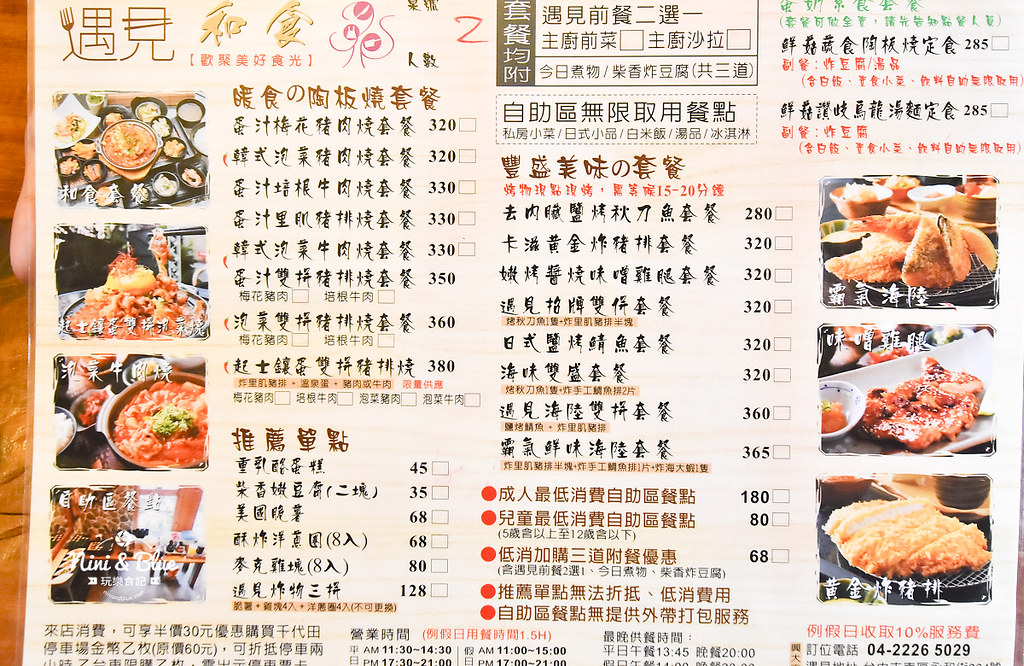 遇見 和食
【歡聚美好食光】
桌號 2
人數
套餐均附
遇見前餐二選一
主廚前菜□主廚沙拉□
今日煮物/柴香炸豆腐(共三道)
自助區無限取用餐點
私房小菜/日式小品/白米飯/湯品/冰淇淋
蛋奶素食套餐
鮮菇蔬食陶板燒定食 285□
副餐:炸豆腐/湯品
(含白飯、素食小菜、飲料自助無限取用)
鮮菇讚岐烏龍湯麵定食 285□
副餐:炸豆腐
(含白飯、素食小菜、飲料自助無限取用)
暖食の陶板燒套餐
蛋汁梅花豬肉燒套餐 320□
韓式泡菜豬肉燒套餐 320□
蛋汁培根牛肉燒套餐 330□
蛋汁里肌豬排燒套餐 330□
韓式泡菜牛肉燒套餐 330□
蛋汁雙拼豬排燒套餐 350
梅花豬肉□ 培根牛肉□
泡菜雙拼豬排燒套餐 360
梅花豬肉□ 培根牛肉□
起士鑲蛋雙拼豬排燒 380
炸里肌豬排 + 溫泉蛋 + 豬肉或牛肉 限量供應
梅花豬肉□ 培根牛肉□ 泡菜豬肉□ 泡菜牛肉□
推薦單點
重乳酪蛋糕 45□
柴香嫩豆腐(二塊) 35□
美國脆薯 68□
酥炸洋蔥圈(8入) 68□
麥克雞塊(8入) 80□
遇見炸物三拼 128□
脆薯+雞塊4入+洋蔥圈4入(不可更換)
豐盛美味の套餐
烤物現點現烤,需等候15-20分鐘
去內臟鹽烤秋刀魚套餐 280□
卡滋黃金炸豬排套餐 320□
嫩烤醬燒味噌雞腿套餐 320□
遇見招牌雙併套餐 320□
烤秋刀魚1隻+炸里肌豬排半塊
日式鹽烤鯖魚套餐 320□
海味雙盛套餐 320□
烤秋刀魚1隻+炸手工鯛魚排2片
遇見海陸雙拼套餐 360□
鹽烤鯖魚 + 炸里肌豬排
霸氣鮮味海陸套餐 365□
炸里肌豬排半塊+炸手工鯛魚排1片+炸海大蝦1隻
●成人最低消費自助區餐點 180□
●兒童最低消費自助區餐點 80□
(5歲含以上至12歲含以下)
●低消加購三道附餐優惠 68□
(含遇見前餐2選1、今日煮物、柴香炸豆腐)
●推薦單點無法折抵、低消費用
●自助區餐點無提供外帶打包服務
和食套餐
起士鑲蛋雙拼泡菜燒
泡菜牛肉燒
自助區餐點
Nini & Blue
玩樂食記
霸氣海陸
味噌雞腿
黃金炸豬排
來店消費,可享半價30元優惠購買千代田
停車場金幣乙枚(原價60元),可折抵停車兩
營業時間 (例假日用餐時間1.5H)
平日 AM 11:30~14:30
PM 17:30~21:00
假 AM 11:00~15:00
PM 17:00~21:00
最晚供餐時間:
平日午餐13:45 晚餐20:00
例假日收取10%服務費
訂位電話 04-2226 5029